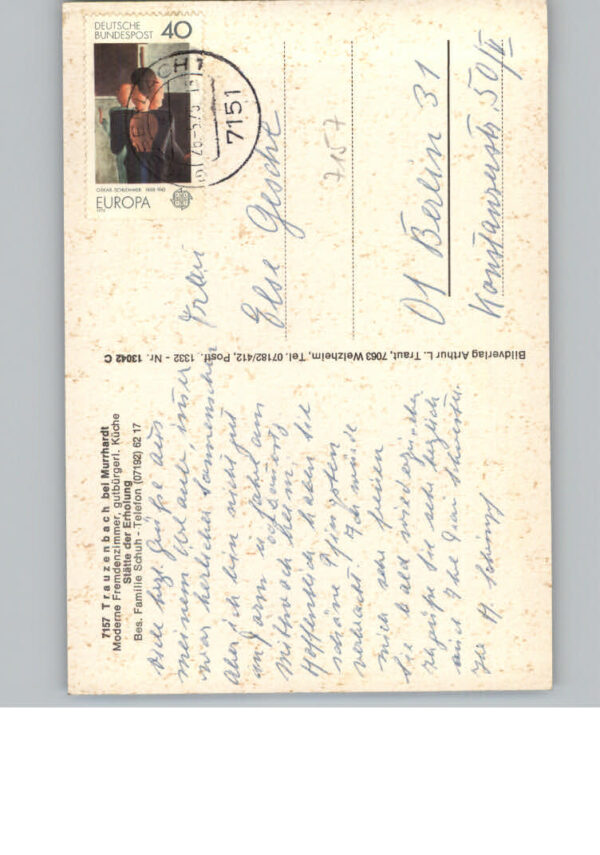 7157 Trauzenbach bei Murrhardt
Moderne Fremdenzimmer, gutbürgerl. Küche
Stätte der Erholung
Bes. Familie Schuh - Telefon (07192) 62 17
viele herzl. Grüße aus
meinem Urlaub, immer
war herlicher Sonnenschein
aber ich bin nicht gut
am Darm u fahre am
Mittwoch heim
Hoffentlich haben Sie
schöne Pfingsten
verbracht. Ich würde
mich sehr freuen
Sie bald wiederzusehen
Sie sehr herzlich
und Ihre Frau Schwester.
Ihr A.
Bildverlag Arthur L. Traut, 7063 Welzheim, Tel. 07182/412, Postf. 1332 - Nr. 13042 C
DEUTSCHE
BUNDESPOST 40
OSKAR SCHLEMMER 1888-1943
EUROPA
7151
Frau
Else Gesche
7157
D1 Berlin 31
Konstanzerstr. 50/II